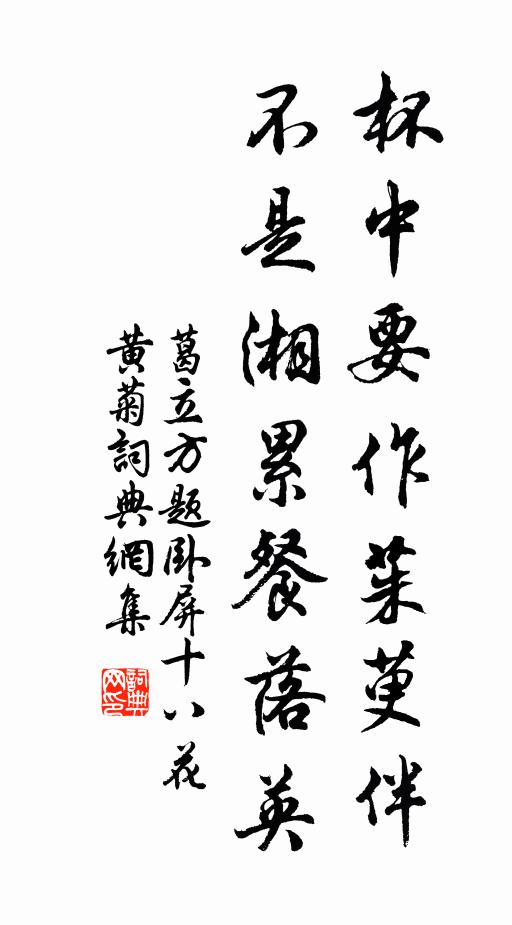 杯中要作茱萸伴
不是湘累餐落英
葛立方题卧屏十八花
黄菊詞典網集
詞典网印